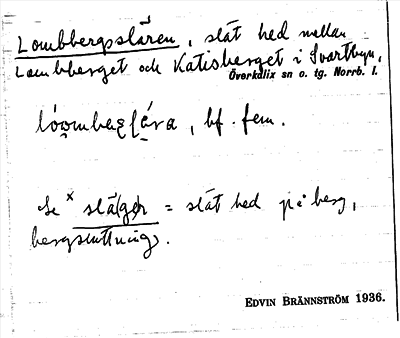 Lombbergsslåren, slät hed mellan
Lombberget och Katisberget i Svartbyn,
Överkalix sn o. tg. Norrb. l.
bf. fem.
Se × slå(ge)r = slät hed på berg,
bergsluttning.
EDVIN BRÄNNSTRÖM 1936.